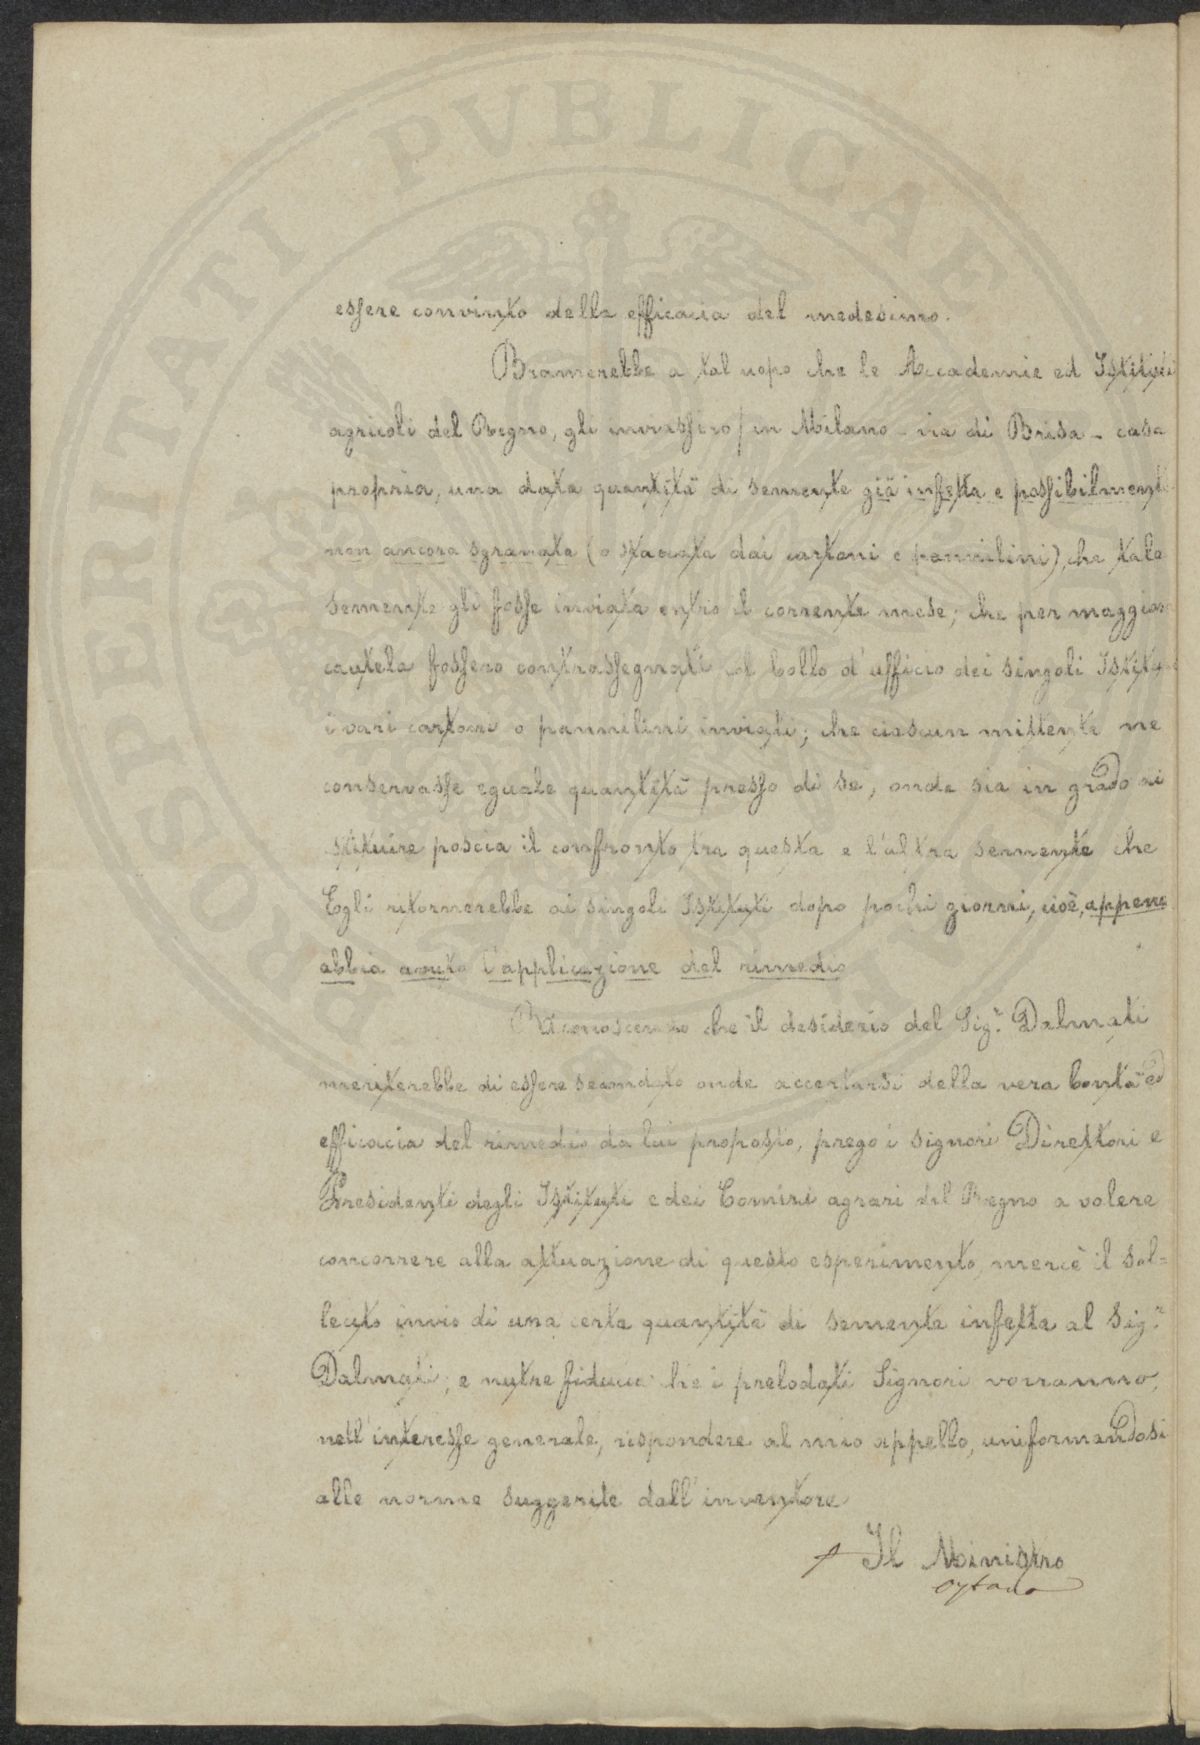 PROSPERITATI PVBLICAE
essere convinto della efficacia del medesimo.
Bramerebbe a tal uopo che le Accademie ed Istituti
agricoli del Regno, gli inviassero / in Milano - via di Brisa - casa
propria, una data quantità di semente già infetta e possibilmente
non ancora sgranata (o staccata dai cartoni e pannilini), che tale
semente gli fosse inviata entro il corrente mese; che per maggior
cautela fossero contrassegnati col bollo d'ufficio dei singoli Istituti
i vari cartoni o pannilini inviati; che ciascun mittente ne
conservasse eguale quantità presso di sè, onde sia in grado di
stituire poscia il confronto tra questa e l'altra semente che
Egli ritornerebbe ai singoli Istituti dopo pochi giorni, cioè, appena
abbia avuto l'applicazione del rimedio
Riconoscendo che il desiderio del Sig.r Dalmati
meriterebbe di essere secondato onde accertarsi della vera bontà ed
efficacia del rimedio da lui proposto, prego i signori Direttori e
Presidenti degli Istituti e dei Comizi agrari del Regno a volere
concorrere alla attuazione di questo esperimento, mercè il sol=
lecito invio di una certa quantità di semente infetta al Sig.r
Dalmati; e nutre fiducia che i prelodati Signori vorranno,
nell'interesse generale, rispondere al mio appello, uniformandosi
alle norme suggerite dall'inventore
Il Ministro